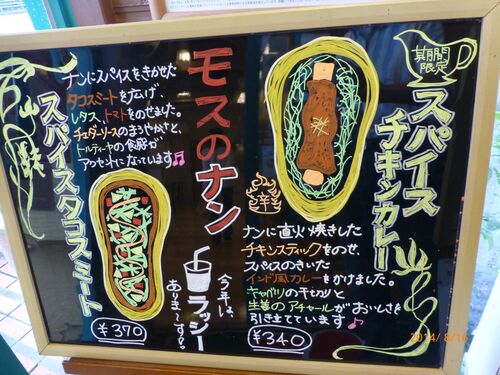 期間
限定
スパイス
チキンカレー
辛
ナンに直火焼きした
チキンスティックをのせ、
スパイスのきいた
インド風カレーをかけました。
キャベツの千切りと
生姜のアチャールがおいしさを
引き立てています♪
¥340
モスのナン
今年は、
ラッシー
あります。
スパイスタコスミート
ナンにスパイスをきかせた
タコスミートを広げ、
レタス、トマトをのせました。
チェダーソースのまろやかさと、
トルティーヤの食感が
アクセントになっています♪
¥370
2014/ 8/16